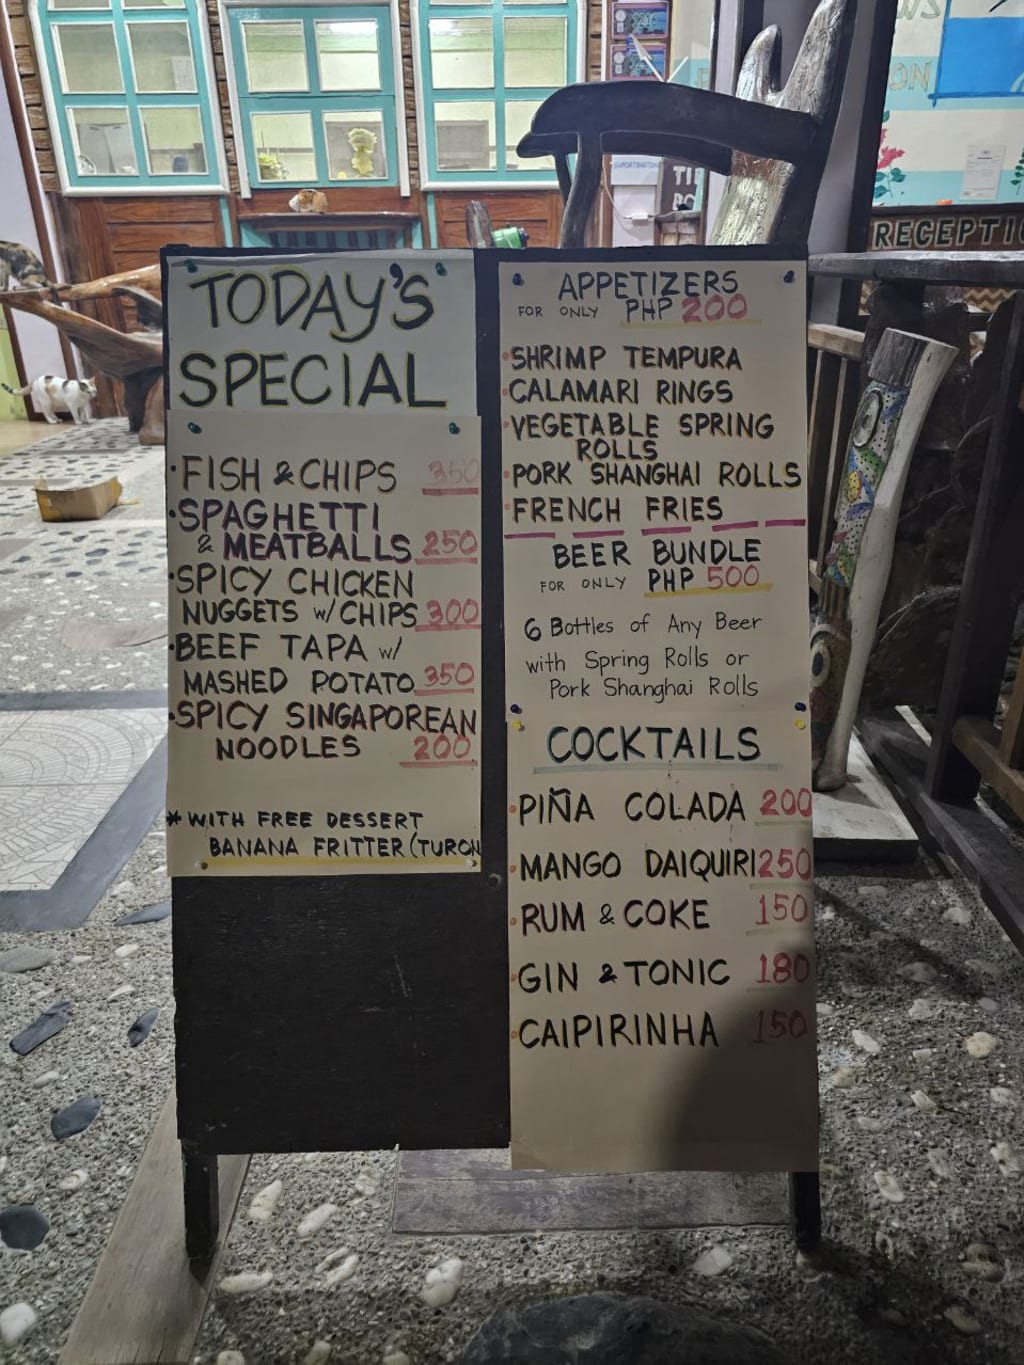 TODAY'S
SPECIAL
• FISH & CHIPS 350
• SPAGHETTI
& MEATBALLS 250
• SPICY CHICKEN
NUGGETS w/ CHIPS 300
• BEEF TAPA w/
MASHED POTATO 350
• SPICY SINGAPOREAN
NOODLES 200
* WITH FREE DESSERT
BANANA FRITTER (TURON
APPETIZERS
FOR ONLY PHP 200
• SHRIMP TEMPURA
• CALAMARI RINGS
• VEGETABLE SPRING
ROLLS
• PORK SHANGHAI ROLLS
• FRENCH FRIES
BEER BUNDLE
FOR ONLY PHP 500
6 Bottles of Any Beer
with Spring Rolls or
Pork Shanghai Rolls
COCKTAILS
• PIÑA COLADA 200
• MANGO DAIQUIRI 250
• RUM & COKE 150
• GIN & TONIC 180
• CAIPIRINHA 150
RECEPTIO